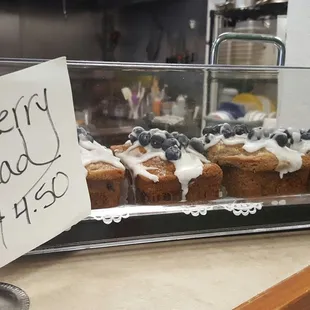 erry
ad
4.50